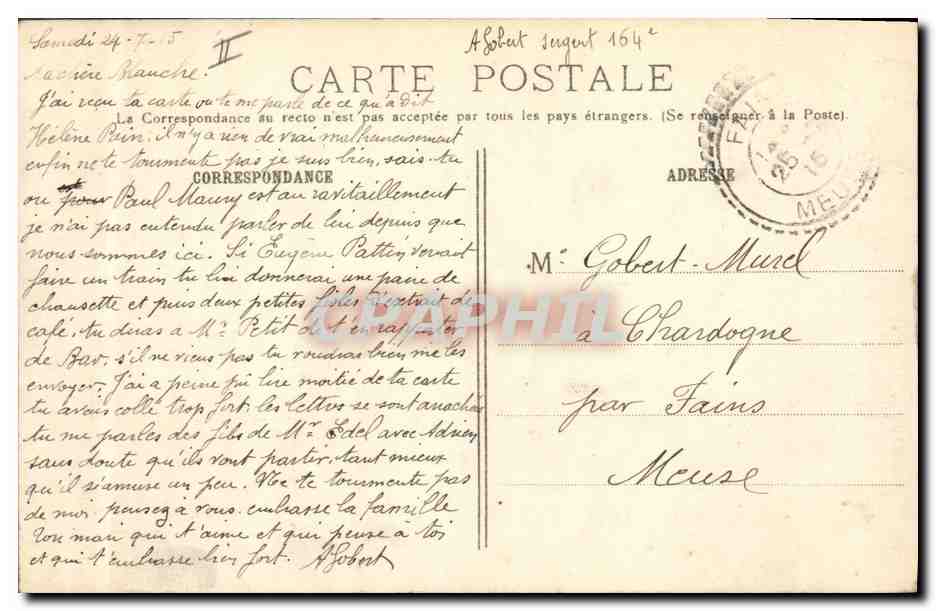 Samedi 24-7-15
II
A Gobert sergent 164e
CARTE POSTALE
Ma chère Blanche.
J'ai reçu ta carte ou te me parle de ce qu'a dit
La Correspondance au recto n'est pas acceptée par tous les pays étrangers. (Se renseigner à la Poste).
Hélène Poin, il n'y a rien de vrai malheureusement
enfin ne te tourmente pas je suis bien, sais-tu
CORRESPONDANCE
ADRESSE
ou Paul Maury est au ravitaillement
je n'ai pas entendu parler de lui depuis que
nous sommes ici. Si Eugène Pattin venait
faire un train tu lui donnerai une paire de
chausette et puis deux petites fioles d'extrait de
café, tu diras a Mr Petit de t'en rapporter
de Bar, s'il ne viens pas tu voudras bien me les
envoyer. J'ai a peine pu lire moitié de ta carte
tu avais collé trop fort, les lettres se sont arrachées
tu me parles des fils de Mr Edel avec Adrien
sans doute qu'ils vont partir, tant mieux
qu'il s'amuse un peu. Ne te tourmente pas
de moi pensez à vous. embrasse la famille
Ton mari qui t'aime et qui pense à toi
et qui t'embrasse bien fort. AGobert
FAINS
25
15
MEUSE
M. Gobert-Murel
à Chardogne
par Fains
Meuse
CPAPHIL